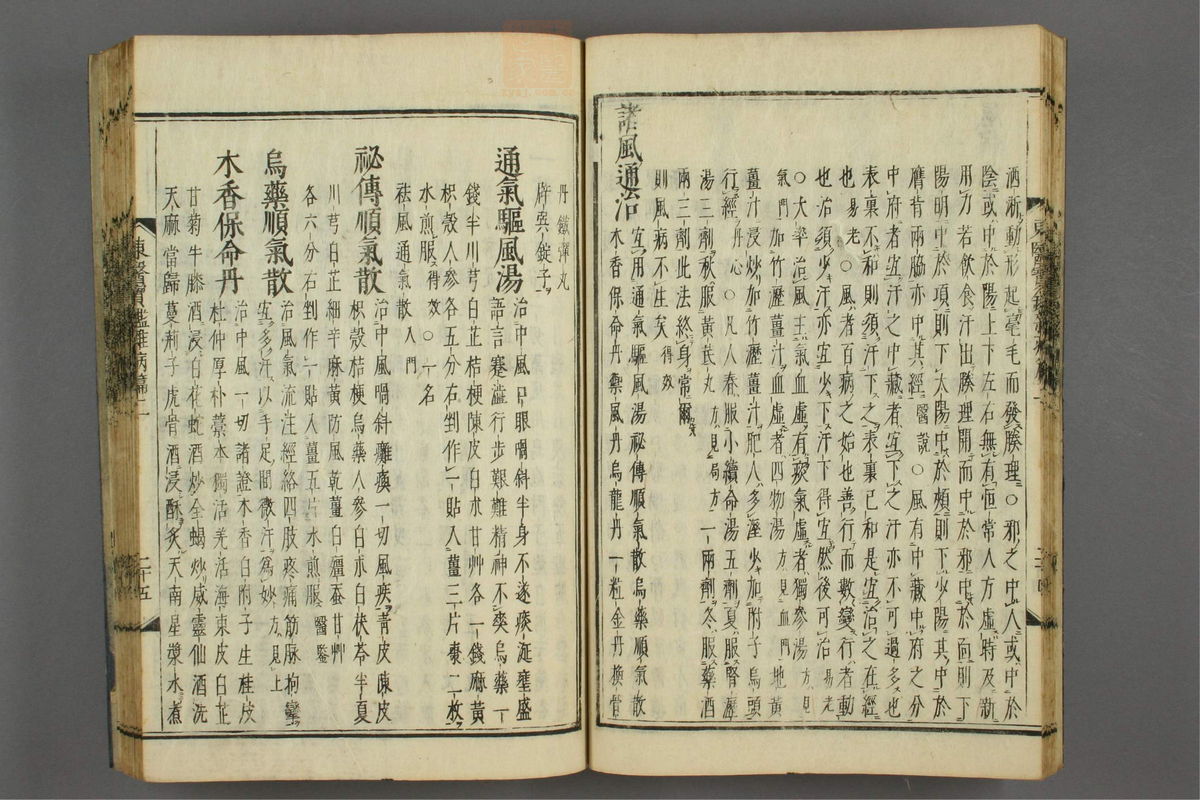 洒淅動形起毫毛而發腠理○邪之中人或中於
陰或中於陽上下左右無有恒常人方虛時及新
用力若飲食汗出腠理開而中於邪中於面則下
陽明中於項則下太陽中於頰則下少陽其中於
膺背兩脇亦中其經醫說○風有中藏中府之分
中府者宜汗之中藏者宜下之汗亦不可過多也
表裏不和則須汗下之表裏已和是宜治之在經
也易老○風者百病之始也善行而數變行者動
也治須少汗亦宜少下汗下得宜然後可治易老
○大率治風主氣血虛有痰氣虛者獨參湯方見
氣門加竹瀝薑汁血虛者四物湯方見血門地黃
薑汁浸炒加竹瀝薑汁肥人多溼少加附子烏頭
行經丹心○凡人春服小續命湯五劑夏服腎瀝
湯三劑秋服黃芪丸方見局方一兩劑冬服藥酒
兩三劑此法終身常爾
則風病不生矣得效
諸風通治
宜用通氣驅風湯祕傳順氣散烏藥順氣散
木香保命丹藥風丹烏龍丹一粒金丹換骨
東醫寶鑑雜病篇二
丹鐵彈丸
卒巽錠子
通氣驅風湯
治中風口眼喎斜半身不遂痰涎壅盛
語言蹇澁行步艱難精神不爽烏藥一
錢半川芎白芷桔梗陳皮白朮甘艸各一錢麻黃
枳殼人參各五分右剉作一貼入薑三片棗二枚
水煎服得效○一名
祛風通氣散入門
祕傳順氣散
治中風喎斜癱瘓一切風疾靑皮陳皮
枳殼桔梗烏藥人參白朮白茯苓半夏
川芎白芷細辛麻黃防風乾薑白殭蚕甘艸
各六分右剉作一貼入薑五片水煎服醫鑒
烏藥順氣散
治風氣流注經絡四肢疼痛筋脉拘攣
宜多汗以手足間微汗爲妙方見上
木香保命丹
治中風一切諸證木香白附子生桂皮
杜仲厚朴藁本獨活羌活海東皮白芷
甘菊牛膝酒浸白花蛇酒炒全蝎炒威靈仙酒洗
天麻當歸蔓荊子虎骨酒浸酥炙天南星漿水煮
東醫寶鑑雜病篇二
二十五